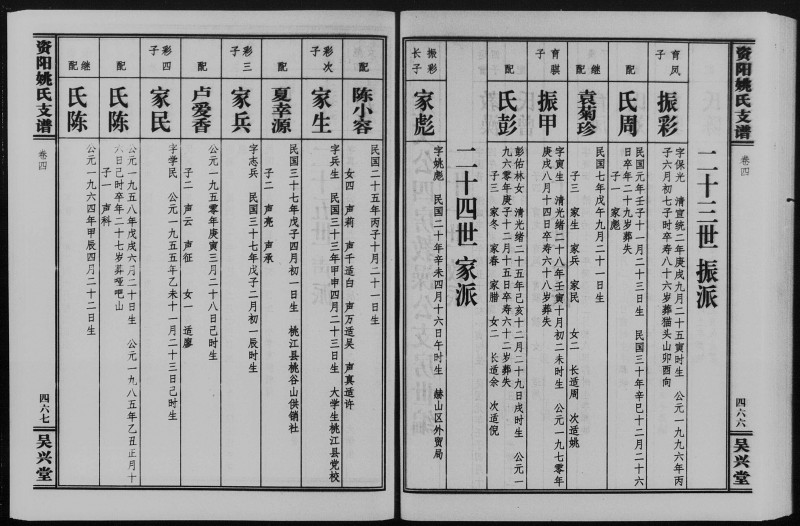 资阳姚氏支谱
卷四
四六六
吴兴堂
二十三世 振派
育凤子
振彩
字保光 清宣统二年庚戌九月二十五寅时生 公元一九九六年丙
子六月初七子时卒寿八十六岁葬猫头山卯酉向
配
氏周
民国元年壬子十一月二十三日生 民国三十年辛巳十二月二十六
日卒年二十九岁葬失
子一 家彪
继配
袁菊珍
民国七年戊午九月二十一日生
子三 家生 家兵 家民 女二 长适周 次适姚
育骐子
振甲
字寅生 清光绪二十八年壬寅十月初二未时生 公元一九七零年
庚戌八月十四日卒寿六十八岁葬失
配
氏彭
彭佑林女 清光绪二十五年己亥十二月二十九日戌时生 公元一
九六零年庚子十二月十五日卒寿六十二岁葬失
子三 家冬 家春 家腊 女二 长适余 次适倪
二十四世 家派
振彩长子
家彪
字姚彪 民国二十年辛未四月十六日午时生 赫山区外贸局
配
陈小容
民国二十五年丙子十月二十一日生
女四 声莉 声千适白 声万适吴 声真适许
彩次子
家生
字兵生 民国三十三年甲申四月二十三日生 大学生桃江县党校
配
夏幸源
民国三十七年戊子四月初一日生 桃江县桃谷山供销社
子二 声亮 声承
彩三子
家兵
字志兵 民国三十七年戊子二月初一辰时生
配
卢爱香
公元一九五零年庚寅三月二十八日己时生
子二 声云 声征 女一 适廖
彩四子
家民
字学民 公元一九五五年乙未十一月二十三日己时生
配
氏陈
公元一九五八年戊戌六月二十日生 公元一九八五年乙丑正月十
六日己时卒年二十七岁葬哑吧山
子一 声科
继配
氏陈
公元一九六四年甲辰四月二十二日生
资阳姚氏支谱
卷四
四六七
吴兴堂